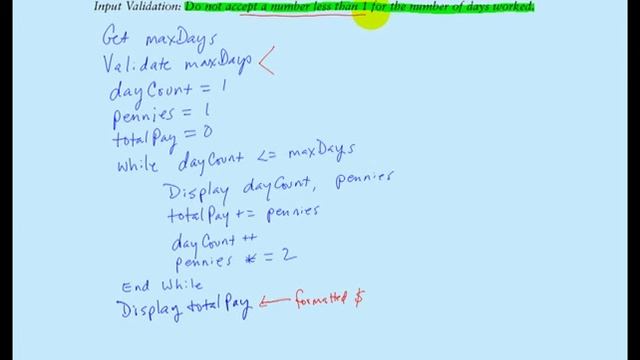 Input Validation: Do not accept a number less than 1 for the number of days worked.
Get maxDays
Validate maxDays
dayCount = 1
pennies = 1
totalPay = 0
While dayCount <= maxDays
Display dayCount, pennies
totalPay += pennies
dayCount ++
pennies *= 2
End While
Display totalPay ← formatted $